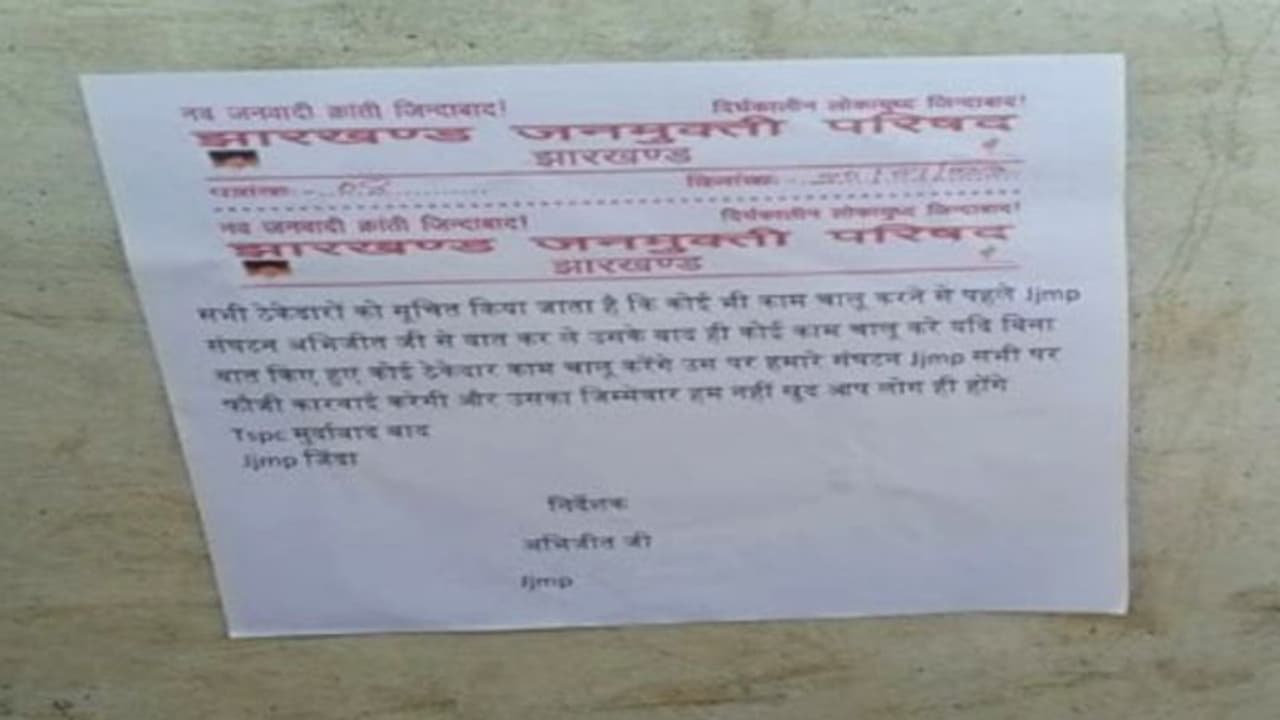 नव जनवादी क्रांती जिन्दाबाद! दिर्घकालीन लोकायुध्द जिन्दाबाद!
झारखण्ड जनमुक्ती परिषद
झारखण्ड
पत्रांक दिनांक
नव जनवादी क्रांती जिन्दाबाद! दिर्घकालीन लोकायुध्द जिन्दाबाद!
झारखण्ड जनमुक्ती परिषद
झारखण्ड
सभी ठेकेदारों को सूचित किया जाता है कि कोई भी काम चालू करने से पहले Jjmp
संघटन अभिजीत जी से बात कर ले उसके बाद ही कोई काम चालू करे यदि बिना
बात किए हुए कोई ठेकेदार काम चालू करेंगे उस पर हमारे संघटन Jjmp सभी पर
फौजी कारवाई करेगी और उसका जिम्मेवार हम नहीं खुद आप लोग ही होंगे
Tspc मुर्दाबाद बाद
Jjmp जिंदा
निर्देशक
अभिजीत जी
Jjmp